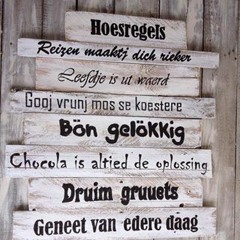 Hoesregels
Reizen maaktj dich rieker
Leefdje is ut waerd
Gooj vrunj mos se koestere
Bön gelökkig
Chocola is altied de oplossing
Druim gruuets
Geneet van edere daag